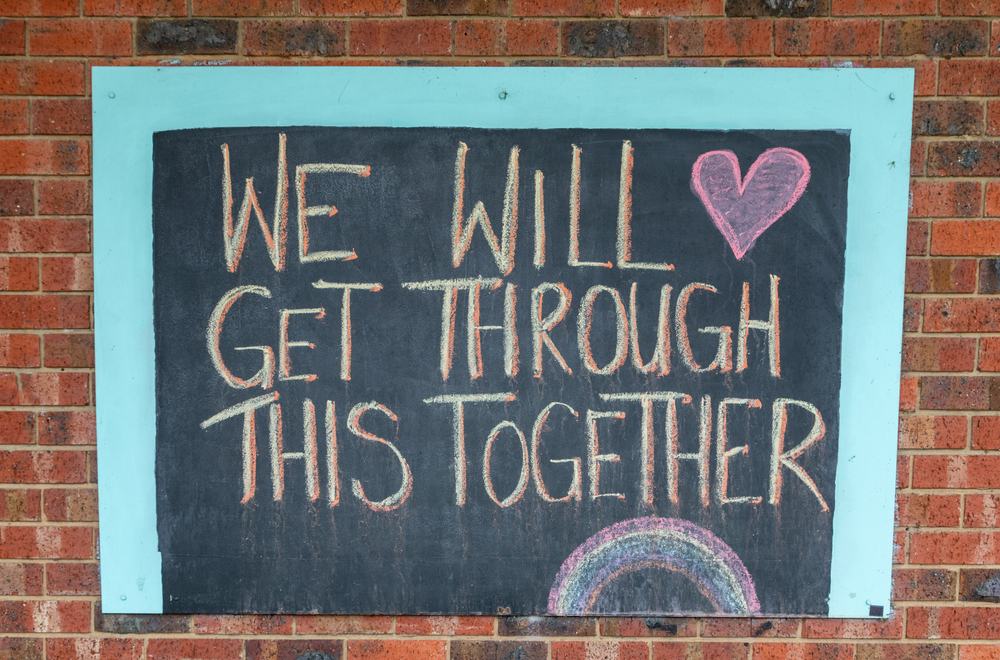 WE WILL
GET THROUGH
THIS TOGETHER